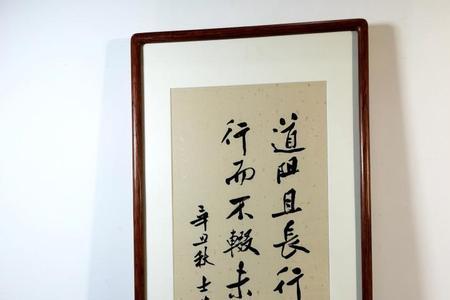 道阻且長行
行而不輟未
辛丑秋士